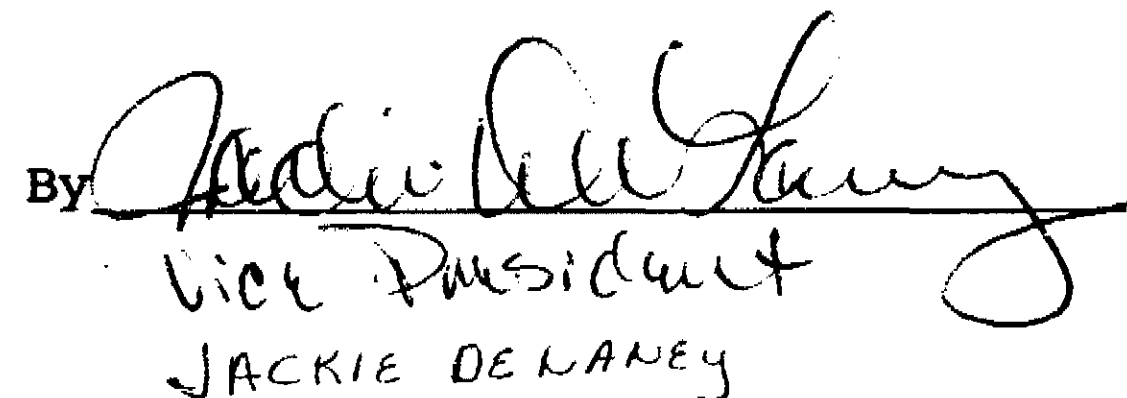 By Jackie DeLaney
Vice President
JACKIE DELANEY